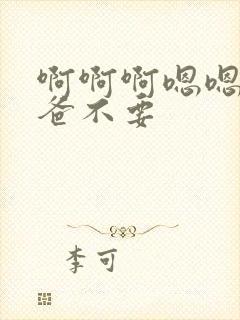 啊啊啊嗯嗯
爸不要
李可